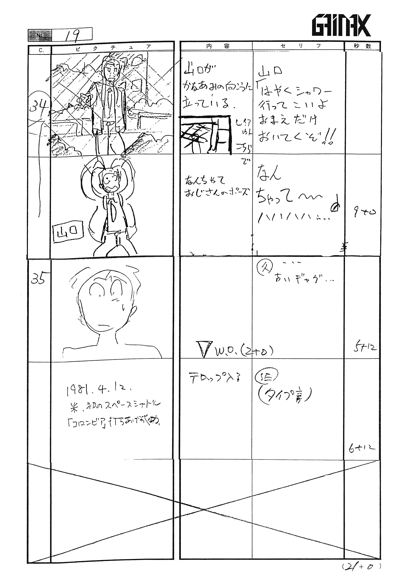 GAINAX
19
C.
ピクチュア
内容
セリフ
秒数
34
山口が
かなあみの向こうに
立っている。
山口
「はやくシャワー
行ってこいよ
おまえだけ
おいてくぞ!!
で
なんちゃって
おじさんのポーズ
なん
ちゃって〜〜
ハハハハ…
9+0
山口
35
(久)
…
古いギャグ…
W.O.(2+0)
5+12
1981.4.12.
米、初のスペースシャトル
「コロンビア」打ちあげ成功。
テロップ入る
(タイプ音)
6+12
(21+0)